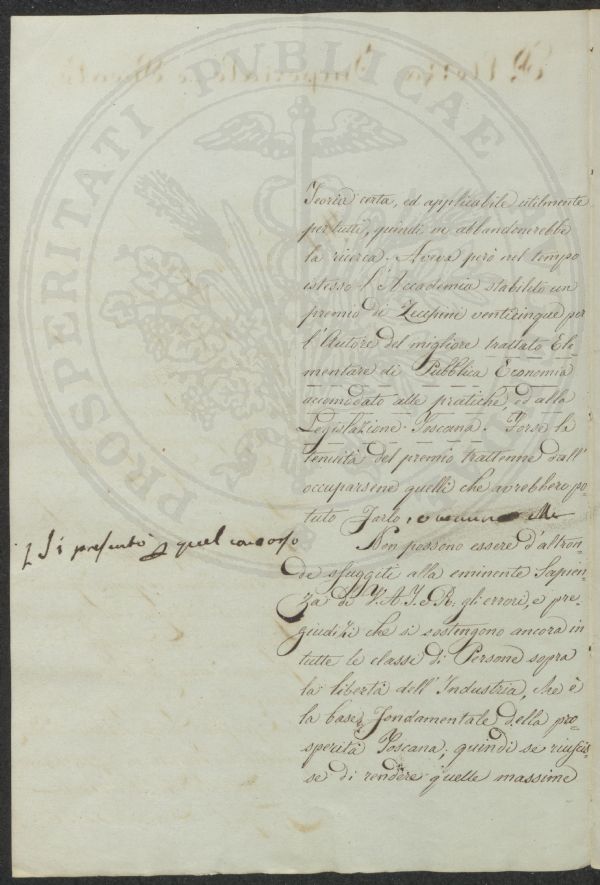 PROSPERITATI PUBLICAE
Teoria certa, ed applicabile utilmente
per tutti, quindi ne abbandonerebbe
la ricerca. Aveva però nel tempo
istesso l'Accademia stabilito un
premio di Zecchini venticinque per
l'Autore del migliore trattato Ele
mentare di Pubblica Economia
accomodato alle pratiche ed alla
Legislazione Toscana. Forse la
tenuità del premio trattenne dall'
occuparsene quelli che avrebbero po-
tuto farlo,
Si presentò a quel concorso
Non possono essere d'altron-
de sfuggiti alla eminente Sapien-
za di V. A. I. e R. gli errori, e pre-
giudizi che si sostengono ancora in
tutte le classi di Persone sopra
la libertà dell'Industria, che è
la base fondamentale della pro-
sperità Toscana; quindi se riuscis-
se di rendere quelle massime